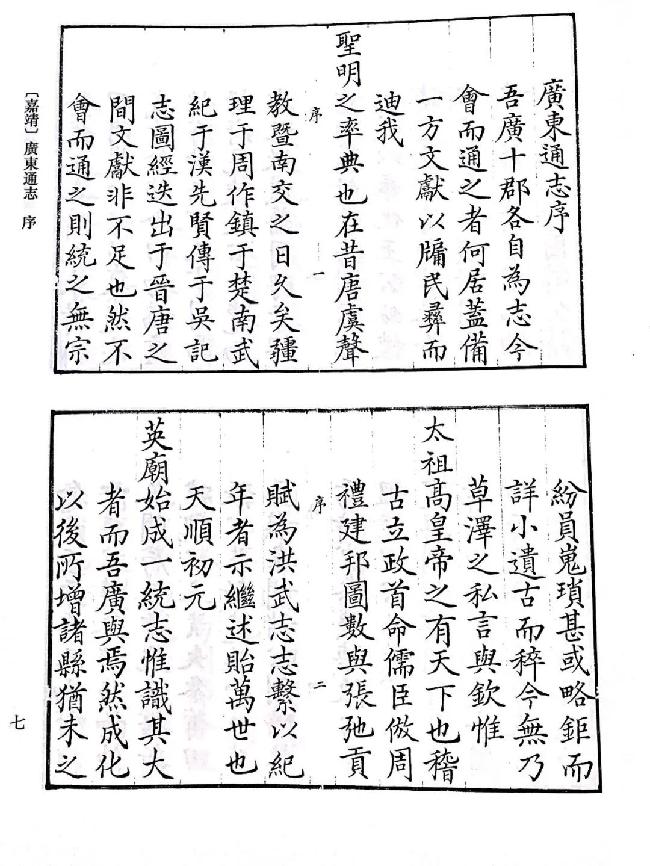 廣東通志序
吾廣十郡各自為志今
會而通之者何居蓋備
一方文獻以牖民彝而
迪我
聖明之率典也在昔唐虞聲
序 一
教暨南交之日久矣疆
理于周作鎮于楚南武
紀于漢先賢傳于吳記
志圖經迭出于晉唐之
間文獻非不足也然不
會而通之則統之無宗
〔嘉靖〕廣東通志 序
紛員嵬瑣甚或略鉅而
詳小遺古而稡今無乃
草澤之私言與欽惟
太祖高皇帝之有天下也稽
古立政首命儒臣倣周
禮建邦圖數與張弛貢
序 二
賦為洪武志志繫以紀
年者示繼述貽萬世也
天順初元
英廟始成一統志惟識其大
者而吾廣與焉然成化
以後所增諸縣猶未之
七